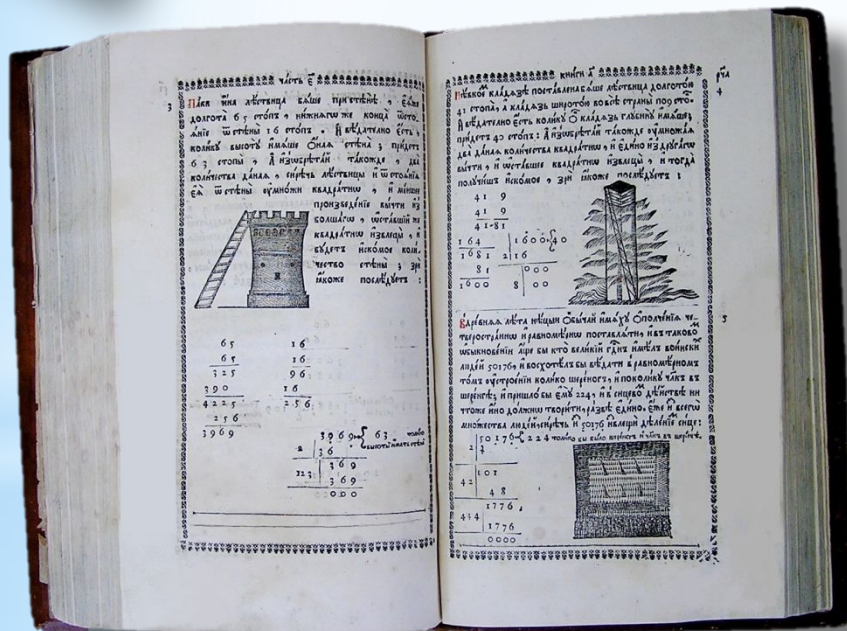 ча́сть є҃
з
Па́ки и҆́на лѣ́ствица бѧ́ше при стѣнѣ̀, є҆ѧ́же
долгота̀ 65 сто́пъ, ни́жнѧгѡ же конца̀ ѿсто-
ѧ́нїе ѿ стѣны̀ 16 сто́пъ. И҆ вѣ́дателно є҆́сть,
коли́кꙋ высотꙋ̀ и҆мѧ́ше ѻ҆́наѧ стѣна̀; прїи́детъ
63 стопы̀, и҆ и҆з̾ѡбрѣта́й та́кожде, два̀
коли́чества да̑наѧ, си́рѣчь лѣ́ствицы и҆ ѿстоѧ́нїѧ
є҆ѧ̀ ѿ стѣны̀ ᲂу҆мно́жи квадра́тнѡ, и҆ ме́ншее
произведе́нїе вы́чти и҆з̾
бо́лшагѡ, ѡ҆ста́вшїй же
квадра́тнѡ и҆звлецы̀, и҆
бꙋ́детъ и҆ско́мое коли́-
чество стѣны̀; зрѝ
ꙗ҆́коже послѣ́дꙋетъ:
65 16
65 16
325 96
390 16
4225 256
256
3969
3969 63 толи́кꙋ
высотꙋ̀ и҆мать стѣна̀
2 36
369
123 369
000
кни́ги а҃ рч҃а
д
41 стопа̀, а҆ кла́дѧзь широто́ю во всѣ̀ страны̀ по 9 сто́пъ.
И҆ вѣ́дателно є҆́сть коли́кꙋ ѻ҆́ кла́дѧзь глꙋбинꙋ̀ и҆мѧ́ше;
прїи́детъ 40 сто́пъ: и҆ и҆з̾ѡбрѣта́й та́кожде ᲂу҆множа́ѧ
два̀ да̑наѧ коли́чества квадра́тнѡ, и҆ є҆ди́но и҆з̾ дрꙋга́гѡ
вы́чти, и҆ ѡ҆ста́вшее квадра́тнѡ и҆звлецы̀, и҆ тогда̀
полꙋ́чишъ и҆ско́мое, зрѝ ꙗ҆́коже послѣ́дꙋетъ:
41 9
41 9
41 81
164 1600 40
1681 2 16
81 000
1600 8 00
є
Въ дре́внѧѧ лѣ̑та нѣ́цыи ѻ҆бы́чай и҆мѧ́хꙋ ѻ҆полче́нїѧ че-
тверостра́ннѡ и҆ равномѣ́рнѡ поставлѧ́ти, и҆ въ таково́мъ
ѡ҆быкнове́нїи а҆́ще бы кто̀ вели́кїй гдⷭ҇нъ и҆мѣ́лъ во́йнски
люде́й 50176, и҆ восхотѣ́лъ бы вѣ́дати в̾ равномѣ́рномъ
то́мъ ᲂу҆строе́нїи коли́кѡ шере́ногъ, и҆ по коли́кꙋ чл҃къ въ
шере́нгѣ; и҆ пришло̀ бы є҆мꙋ̀ 224, и҆ в̾ си́цевѡ дѣ́йствѣ ни
что́же и҆́но до́лжнѡ твори́ти, ра́звѣ є҆ди́но, є҆́же и҆ всегѡ̀
мно́жества люде́й си́рѣчь и҆ 50176 и҆звлещѝ дѣле́нїе си́це:
50176 224 толи́кѡ бы бы́ло шере́нгъ и҆ чл҃къ въ шере́нгѣ.
2 4
101
42
48
1776
444 1776
0000